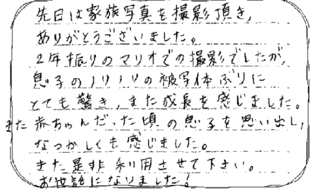 先日は家族写真を撮影頂き、
ありがとうございました。
2年振りのマリオでの撮影でしたが、
息子のノリノリの被写体ぶりに
とても驚き、また成長を感じました。
また赤ちゃんだった頃の息子を思い出し、
なつかしくも感じました。
また是非利用させて下さい。
お世話になりました!